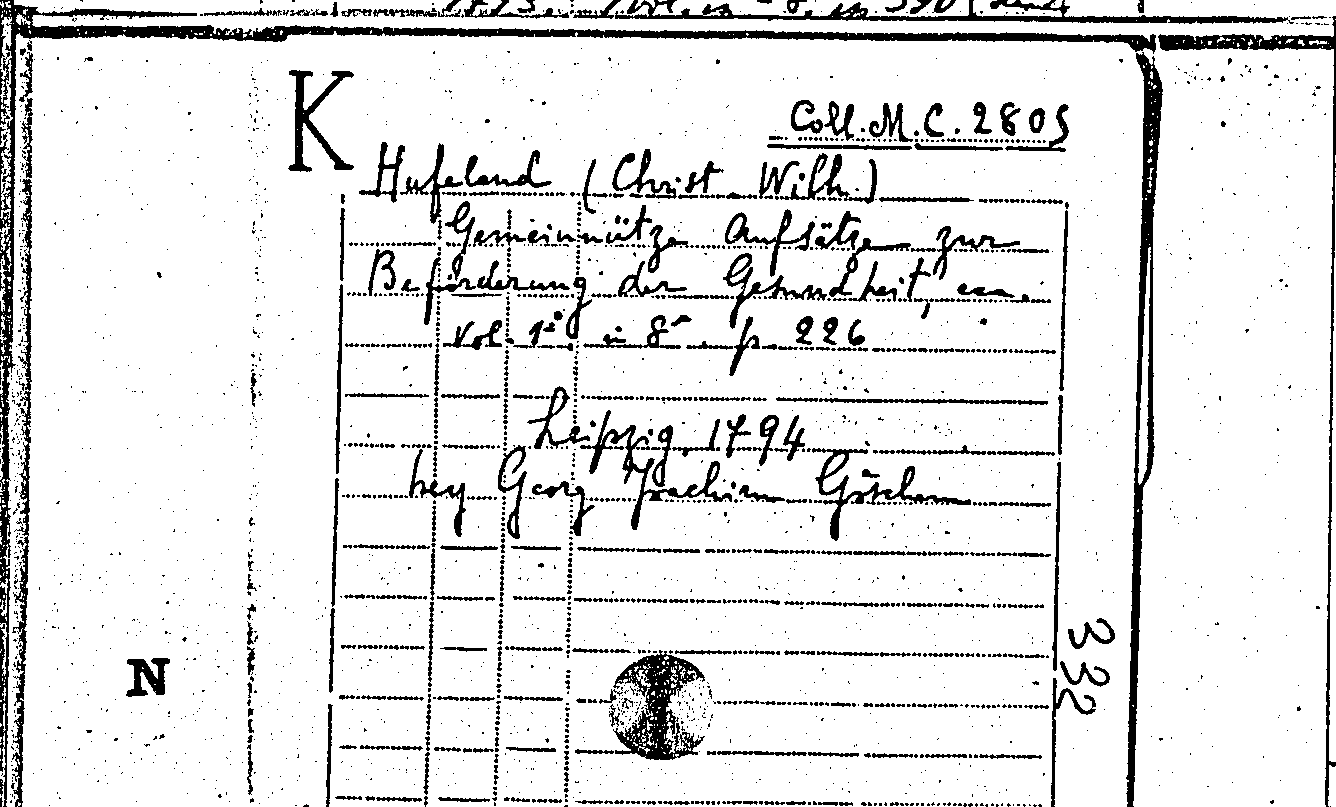 K
Coll. M. C. 2805
Hufeland (Christ. Wilh.)
Gemeinnütze Aufsätze zur
Beförderung der Gesundheit,
vol. 1° in 8° . p. 226
Leipzig. 1794
bey Georg Joachim Göschen
332
N